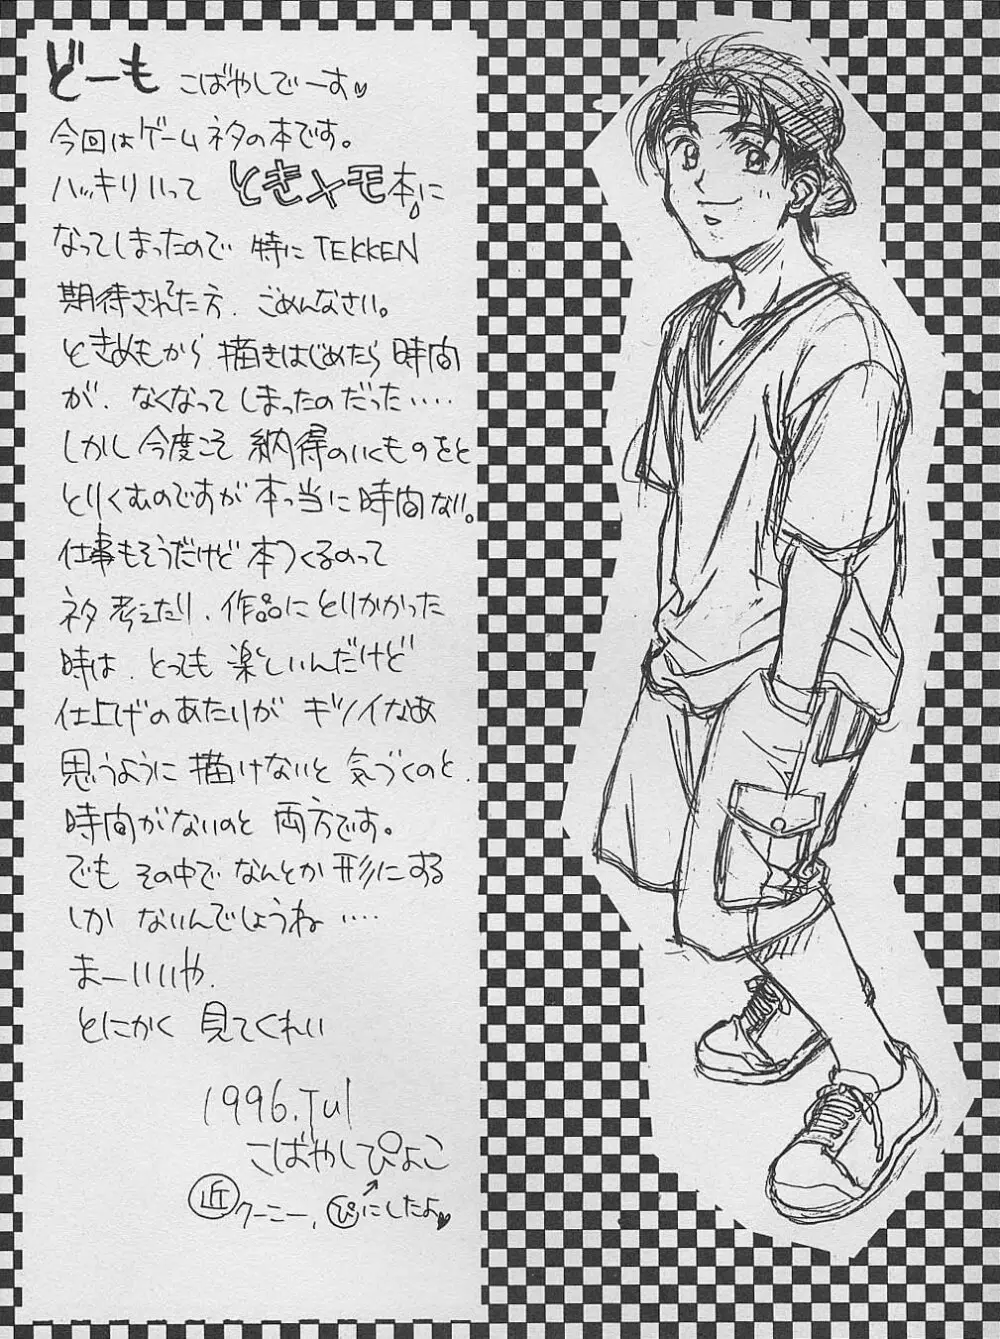 どーも こばやしでーす♡
今回はゲームネタの本です。
ハッキリいって ときメモ本に
なってしまったので 特にTEKKEN
期待されてた方、ごめんなさい。
ときめもから 描きはじめたら 時間
が、なくなってしまったのだった‥‥
しかし 今度こそ 納得のいくものをと
とりくむのですが 本っ当に 時間ない。
仕事もそうだけど 本つくるのって
ネタ考えたり、作品にとりかかった
時は、とっても 楽しいんだけど
仕上げのあたりが キツイなあ
思うように 描けないと 気づくのと、
時間がないのと 両方です。
でも その中で なんとか 形にする
しか ないんでしょうね‥‥
まーいいや、
とにかく 見てくれい
1996.Jul
こばやしぴよこ
近 クーニー、ぴにしたよ♡